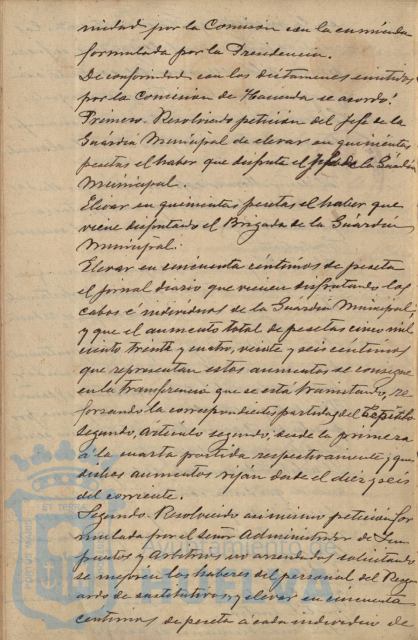 midad por la Comisión con la enmienda
formulada por la Presidencia.
De conformidad con los dictamenes emitidos
por la Comisión de Hacienda se acordó:
Primero. Resolviendo petición del Jefe de la
Guardia Municipal de elevar en quinientas
pesetas el haber que disfruta el Jefe de la Guardia
Municipal.
Elevar en quinientas pesetas el haber que
viene disfrutando el Brigada de la Guardia
Municipal.
Elevar en cincuenta céntimos de peseta
el jornal diario que vienen disfrutando los
cabos é individuos de la Guardia Municipal;
y que el aumento total de pesetas cinco mil
ciento treinta y cuatro, veinte y seis céntimos
que representan estos aumentos se consigne
en la transferencia que se está tramitando, re
forzando la correspondientes partidas del Capítulo
segundo, Artículo segundo, desde la primera
á la cuarta partida respectivamente, y que
dichos aumentos rijan desde el diez y seis
del corriente.
Segundo. Resolviendo asimismo petición for
mulada por el señor Administrador de Im
puestos y Arbitrios en arriendo solicitando
se mejoren los haberes del personal del Resgu
ardo de sustitutivos, elevar en cincuenta
centimos de peseta a cada individuo de